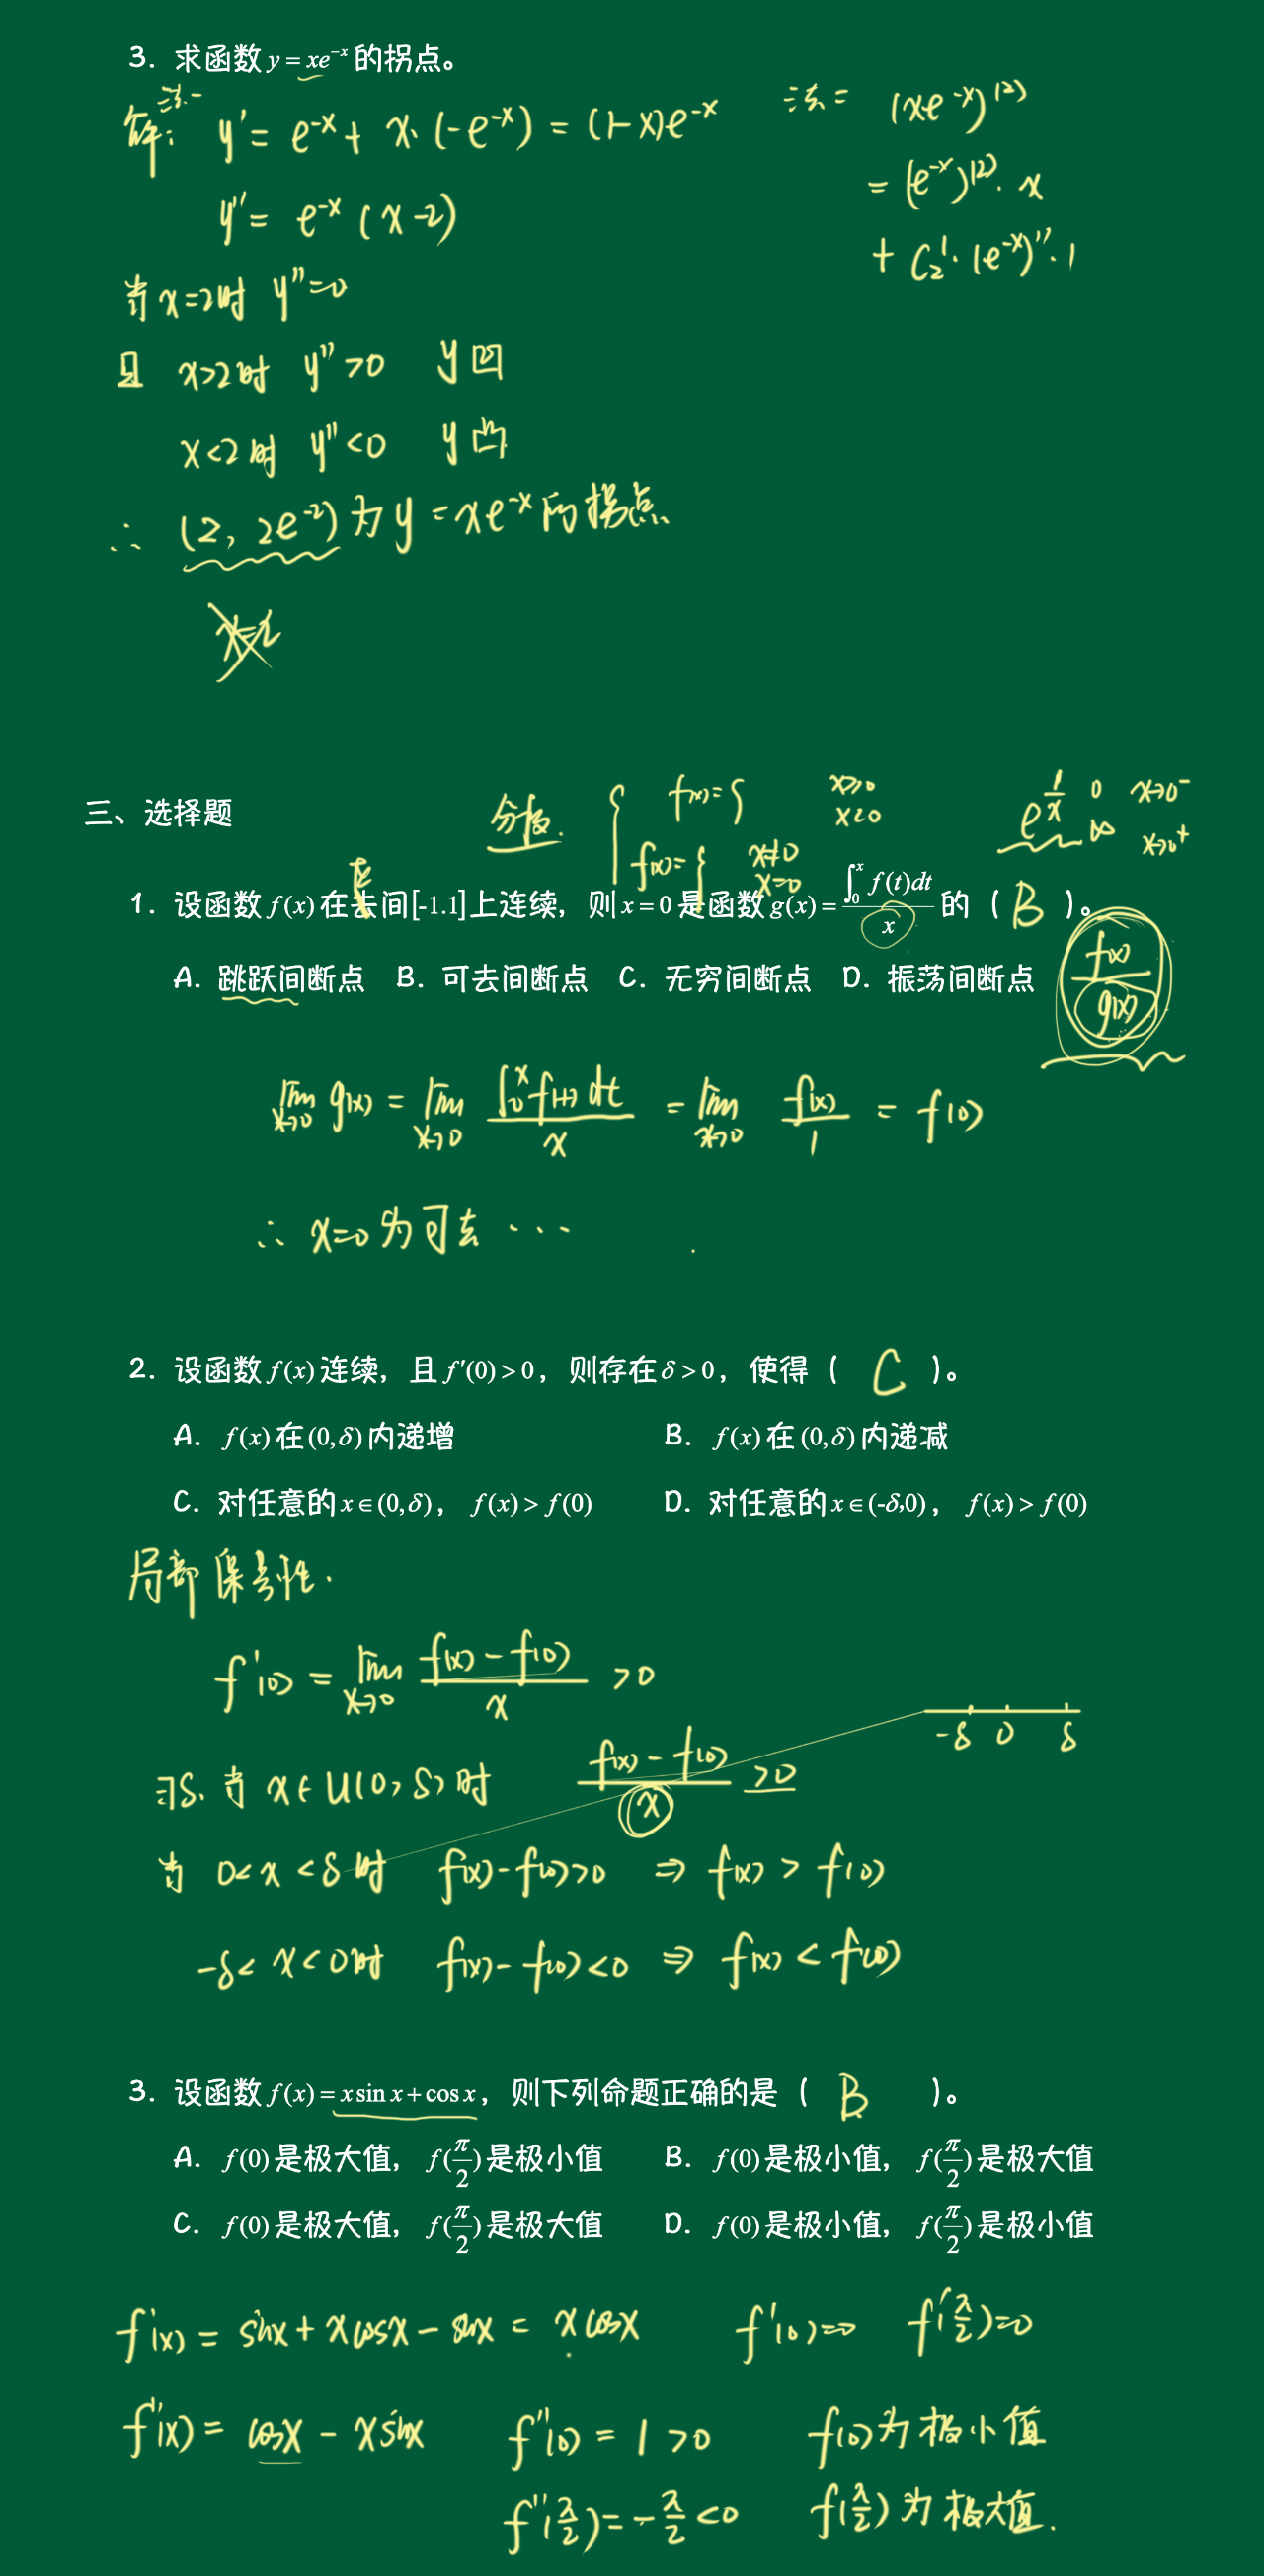 3. 求函数 y = xe^{-x} 的拐点。
解: 法一 y' = e^{-x} + x·(-e^{-x}) = (1-x)e^{-x}
y'' = e^{-x}(x-2)
当 x=2时 y''=0
且 x>2时 y''>0 y凹
x<2时 y''<0 y凸
∴ (2, 2e^{-2}) 为 y=xe^{-x} 的拐点
法二 (xe^{-x})^{(2)}
= (e^{-x})^{(2)}·x
+ C_2^1·(e^{-x})''·1
三、选择题
分段. { f(x)={ x≥0 x<0
f(x)={ x≠0 x=0
e^{1/x} 0 x→0^-
∞ x→0^+
1. 设函数 f(x) 在去间[-1.1]上连续，则 x=0 是函数 g(x) = ∫_0^x f(t)dt / x 的（ B ）。
区
A. 跳跃间断点 B. 可去间断点 C. 无穷间断点 D. 振荡间断点
f(x)/g(x)
lim_{x→0} g(x) = lim_{x→0} ∫_0^x f(t)dt / x = lim_{x→0} f(x)/1 = f(0)
∴ x=0 为可去 ···
2. 设函数 f(x) 连续，且 f'(0)>0，则存在 δ>0，使得（ C ）。
A. f(x) 在 (0,δ) 内递增 B. f(x) 在 (0,δ) 内递减
C. 对任意的 x∈(0,δ)，f(x)>f(0) D. 对任意的 x∈(-δ,0)，f(x)>f(0)
局部保号性.
f'(0) = lim_{x→0} (f(x)-f(0))/x >0
-δ 0 δ
∃δ. 当 x∈U(0,δ)时 (f(x)-f(0))/x >0
当 0<x<δ时 f(x)-f(0)>0 ⇒ f(x)>f(0)
-δ<x<0时 f(x)-f(0)<0 ⇒ f(x)<f(0)
3. 设函数 f(x)=x sin x+cos x，则下列命题正确的是（ B ）。
A. f(0) 是极大值，f(π/2) 是极小值 B. f(0) 是极小值，f(π/2) 是极大值
C. f(0) 是极大值，f(π/2) 是极大值 D. f(0) 是极小值，f(π/2) 是极小值
f'(x) = sinx + xcosx - sinx = xcosx f'(0)=0 f'(π/2)=0
f''(x) = cosx - xsinx f''(0) = 1 >0 f(0)为极小值
f''(π/2) = -π/2 <0 f(π/2)为极大值.